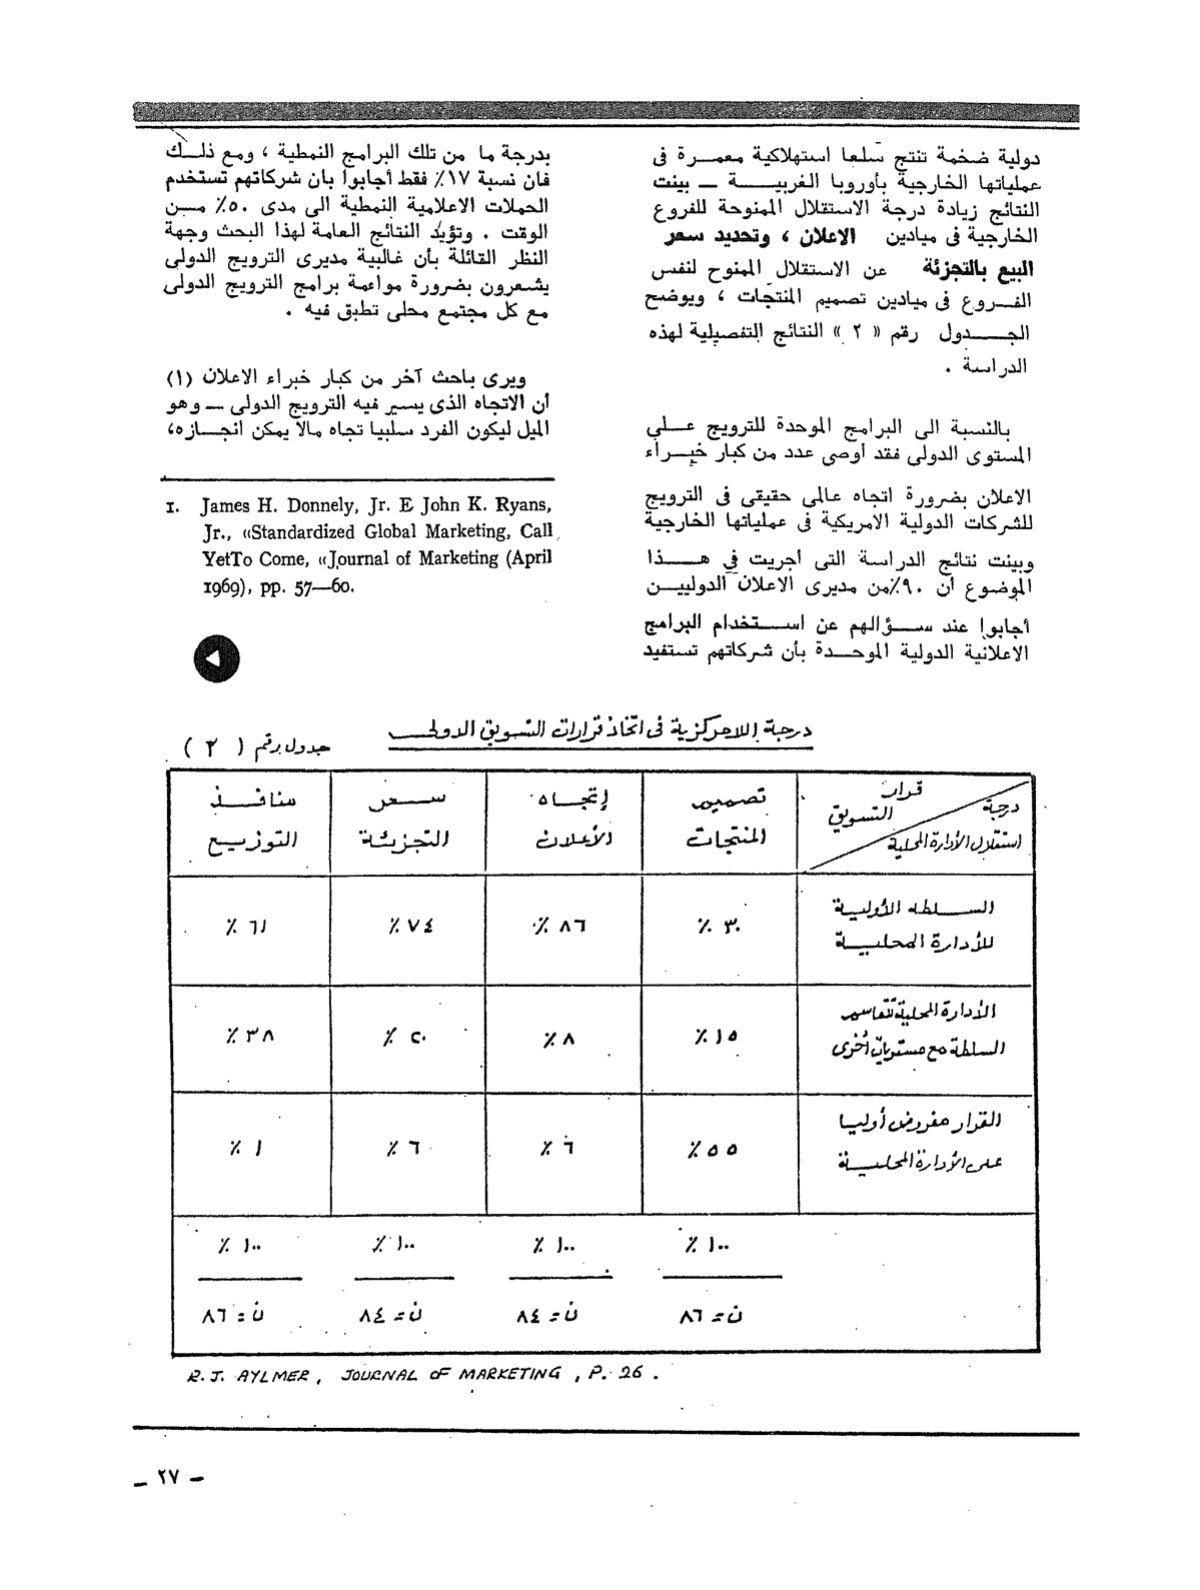 دولية ضخمة تنتج سلعا استهلاكية معمرة فى
عملياتها الخارجية بأوروبا الغربية — بينت
النتائج زيادة درجة الاستقلال الممنوحة للفروع
الخارجية فى ميادين الاعلان ، وتحديد سعر
البيع بالتجزئة عن الاستقلال الممنوح لنفس
الفروع فى ميادين تصميم المنتجات ، ويوضح
الجدول رقم « ٢ » النتائج التفصيلية لهذه
الدراسة .
بالنسبة الى البرامج الموحدة للترويج على
المستوى الدولى فقد أوصى عدد من كبار خبراء
الاعلان بضرورة اتجاه عالمى حقيقى فى الترويج
للشركات الدولية الامريكية فى عملياتها الخارجية
وبينت نتائج الدراسة التى أجريت فى هذا
الموضوع أن ٩٠٪ من مديرى الاعلان الدوليين
أجابوا عند سؤالهم عن استخدام البرامج
الاعلانية الدولية الموحدة بأن شركاتهم تستفيد
بدرجة ما من تلك البرامج النمطية ، ومع ذلك
فان نسبة ١٧٪ فقط أجابوا بأن شركاتهم تستخدم
الحملات الاعلامية النمطية الى مدى ٥٠٪ من
الوقت . وتؤيد النتائج العامة لهذا البحث وجهة
النظر القائلة بأن غالبية مديرى الترويج الدولى
يشعرون بضرورة مواءمة برامج الترويج الدولى
مع كل مجتمع محلى تطبق فيه .
ويرى باحث آخر من كبار خبراء الاعلان (١)
أن الاتجاه الذى يسير فيه الترويج الدولى — وهو
الميل ليكون الفرد سلبيا تجاه مالا يمكن انجازه،
1. James H. Donnely, Jr. E John K. Ryans,
Jr., «Standardized Global Marketing, Call
YetTo Come, «Journal of Marketing (April
1969), pp. 57—60.
درجة اللامركزية فى اتخاذ قرارات التسويق الدولى
جدول رقم ( ٢ )
قرارات التسويق
درجة استقلال الأدارة المحلية
تصميم المنتجات
إتجاه الأعلان
سعر التجزئة
منافذ التوزيع
السلطه الأولية للأدارة المحلية
٣٠ ٪
٨٦ ٪
٧٤ ٪
٦١ ٪
الأدارة المحلية تتقاسم السلطة مع مستويات أخرى
١٥ ٪
٨ ٪
٢٠ ٪
٣٨ ٪
القرار مفروض أوليا على الأدارة المحلية
٥٥ ٪
٦ ٪
٦ ٪
١ ٪
١٠٠ ٪
١٠٠ ٪
١٠٠ ٪
١٠٠ ٪
ن = ٨٦
ن = ٨٤
ن = ٨٤
ن = ٨٦
R. J. AYLMER, JOURNAL OF MARKETING, P. 26 .
— ٢٧ —